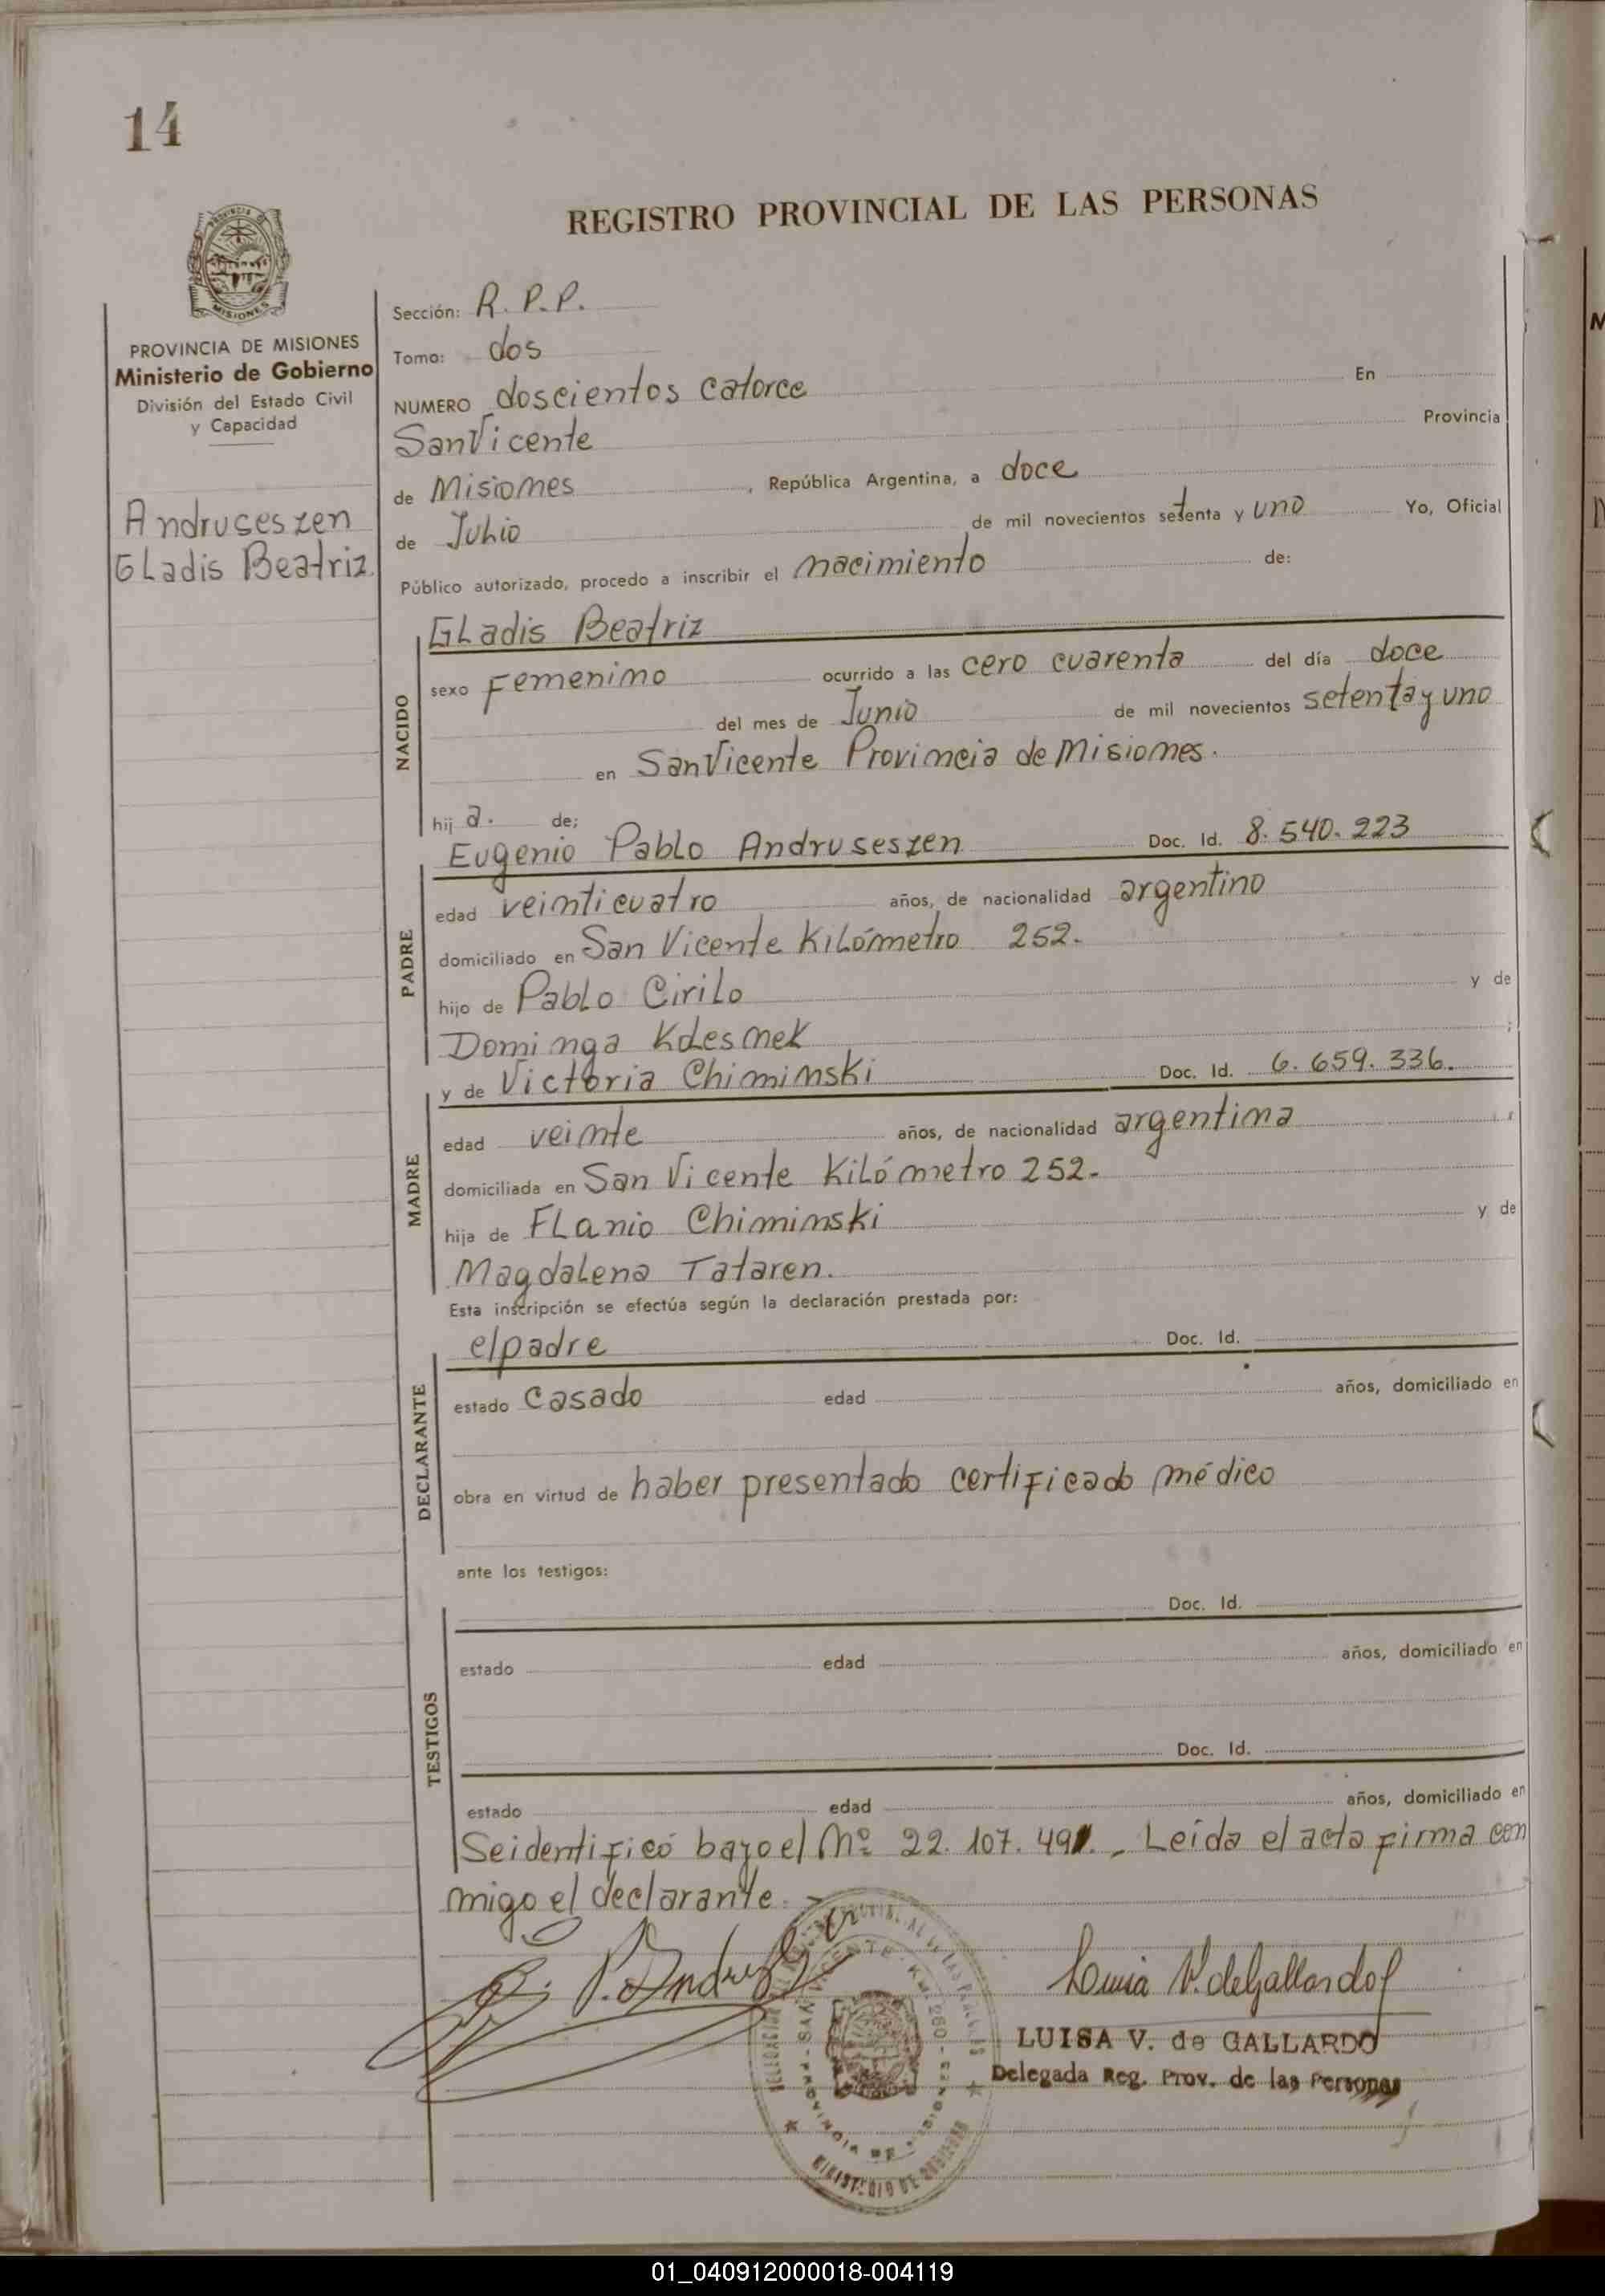 14
REGISTRO PROVINCIAL DE LAS PERSONAS
MISIONES
PROVINCIA DE MISIONES
Ministerio de Gobierno
División del Estado Civil
y Capacidad
Andruseszen
Gladis Beatriz
Sección: R. P. P.
Tomo: dos
NUMERO doscientos catorce En
San Vicente Provincia
de Misiones, República Argentina, a doce
de Julio de mil novecientos setenta y uno Yo, Oficial
Público autorizado, procedo a inscribir el nacimiento de:
NACIDO
Gladis Beatriz
sexo Femenino ocurrido a las cero cuarenta del día doce
del mes de Junio de mil novecientos setenta y uno
en San Vicente Provincia de Misiones.
hija. de;
PADRE
Eugenio Pablo Andruseszen Doc. Id. 8.540.223
edad veinticuatro años, de nacionalidad argentino
domiciliado en San Vicente Kilómetro 252.
hijo de Pablo Cirilo y de
Dominga ;
MADRE
y de Victoria Chiminski Doc. Id. 6.659.336.
edad veinte años, de nacionalidad argentina
domiciliada en San Vicente Kilómetro 252.
hija de Flanio Chiminski y de
Magdalena Tataren.
Esta inscripción se efectúa según la declaración prestada por:
DECLARANTE
el padre Doc. Id.
estado casado edad años, domiciliado en
obra en virtud de haber presentado certificado médico
ante los testigos:
TESTIGOS
Doc. Id.
estado edad años, domiciliado en
Doc. Id.
estado edad años, domiciliado en
Se identificó bajo el Nº 22.107.491., Leída el acta firma con
migo el declarante.
Luisa V. de Gallardo
LUISA V. de GALLARDO
Delegada Reg. Prov. de las Personas
01_040912000018-004119